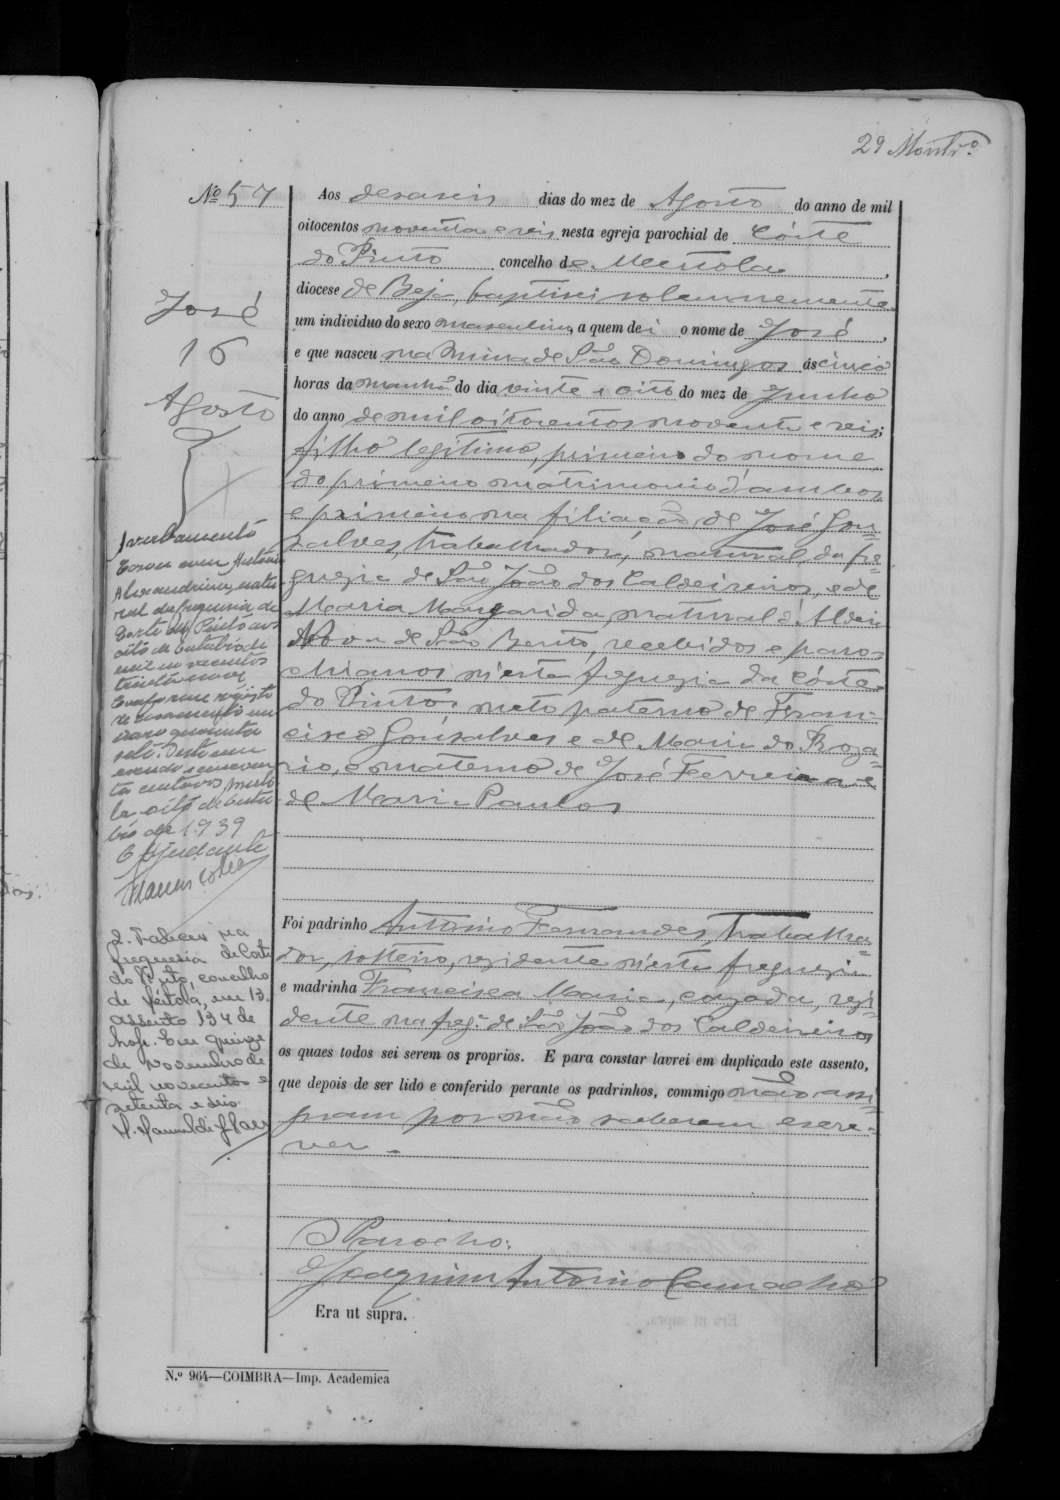 29
Nº 57
José
16
Agosto
Aos desaseis dias do mez de Agosto do anno de mil
oitocentos noventa e seis nesta egreja parochial de Córte
do Pinto concelho de Mertola,
diocese de Beja, baptisei solemnemente
um individuo do sexo masculino, a quem dei o nome de José,
e que nasceu na Mina de São Domingos ás cinco
horas da manhã do dia vinte e oito do mez de Junho
do anno de mil oitocentos noventa e seis;
filho legitimo, primeiro do nome
do primeiro matrimonio d'ambos
e primeiro na filiação, de José Gon-
salves, trabalhador, natural da fre-
guezia de São João dos Caldeireiros, e de
Maria Margarida, natural d'Aldeia
Nova de São Bento, recebidos e paro-
chianos n'esta freguezia da Córte
do Pinto; neto paterno de Fran-
cisco Gonsalves e de Maria do Roza-
rio, e materno de José Ferreira e
de Maria Paulos
Foi padrinho Antonio Fernandes, trabalha-
dor, solteiro, rezidente n'esta freguezia
e madrinha Francisca Maria, cazada, rezi-
dente na freg.ª de São João dos Caldeireiros
os quaes todos sei serem os proprios. E para constar lavrei em duplicado este assento,
que depois de ser lido e conferido perante os padrinhos, commigo não assi-
gnam por não saberem escre-
ver.
O Parocho:
Joaquim Antonio Camacho
Era ut supra.
Averbamento
Casou com Antónia
Alexandrina, natu
ral da freguesia de
Corte do Pinto aos
oito de outubro de
mil novecentos
trinta e nove
Conforme registo
de casamento nu
mero quarenta
sete.
oito de outu
bro de 1939
O Ajudante
2. Faleceu na
freguesia de Corte
do Pinto, concelho
de Mértola, em 13.
Assento 134 de
hoje. Em quinze
de Novembro de
mil novecentos e
setenta e seis.
N.º 964—COIMBRA—Imp. Academica